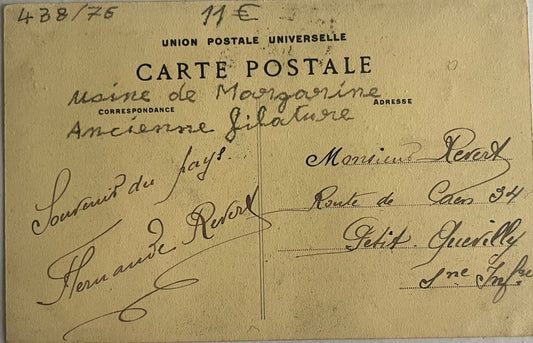 438/76 11€
UNION POSTALE UNIVERSELLE
CARTE POSTALE
Usine de Margarine
CORRESPONDANCE ADRESSE
Ancienne filature
Souvenir du pays.
Fernande Revert
Monsieur Revert
Route de Caen 34
Petit. Quevilly
Sne Infre